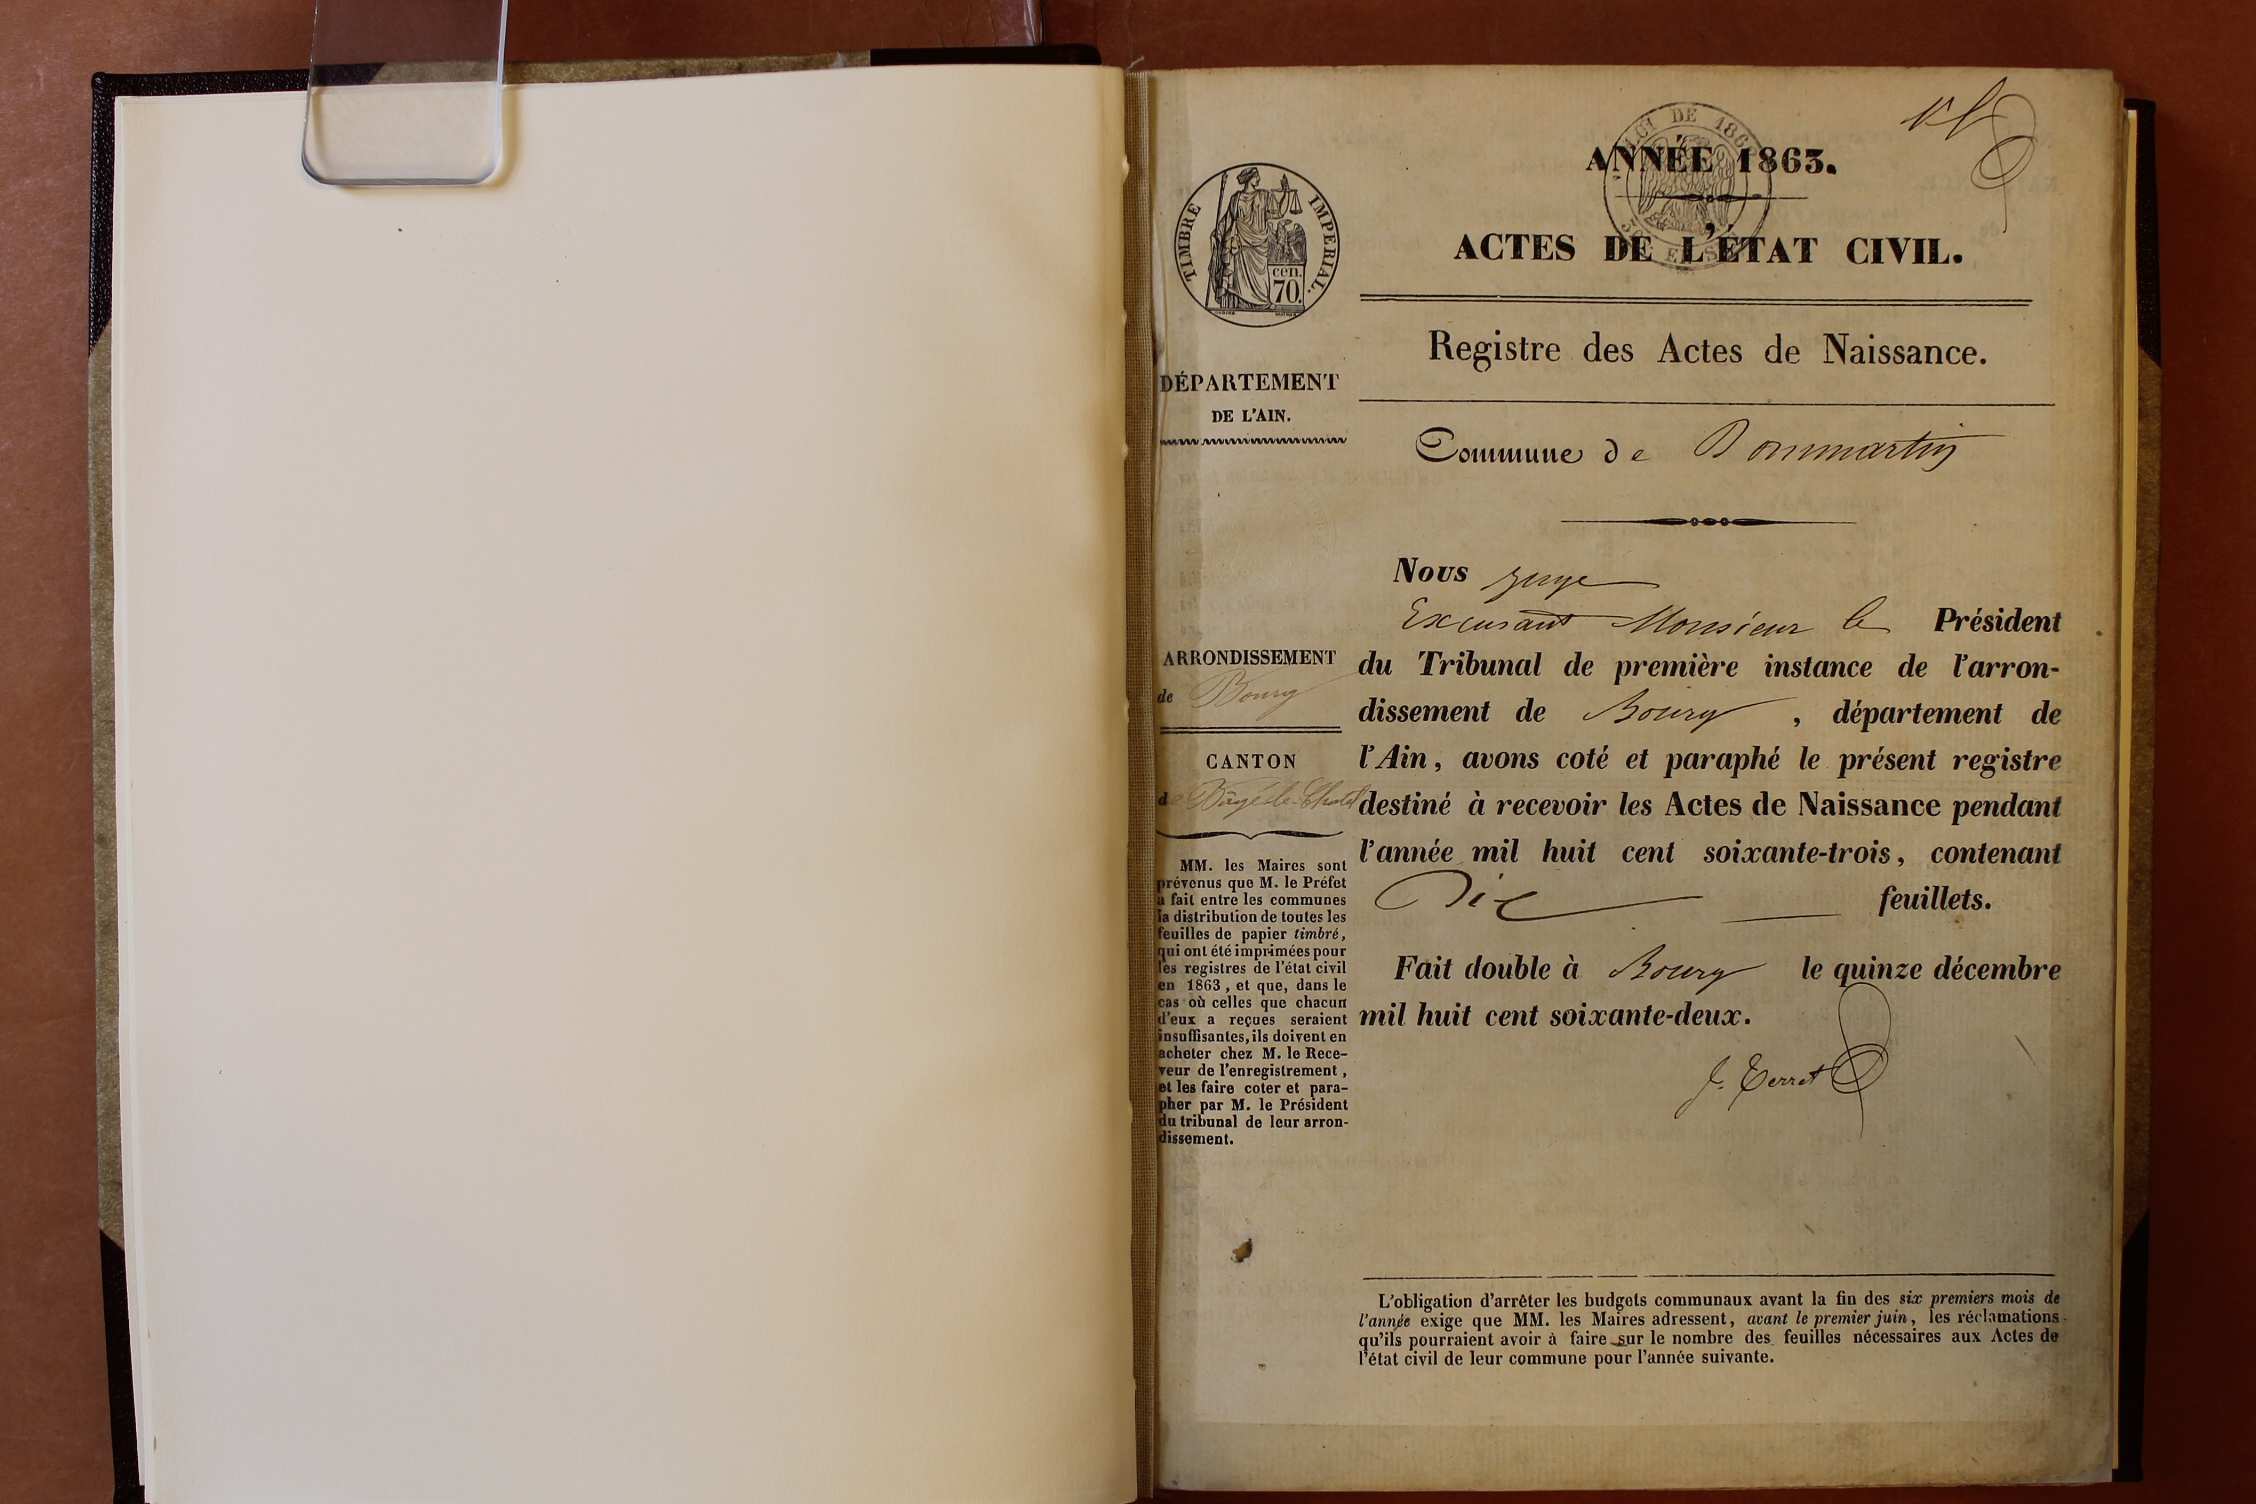 ANNÉE 1863.
ACTES DE L'ÉTAT CIVIL.
TIMBRE IMPERIAL.
cen.
70.
Registre des Actes de Naissance.
DÉPARTEMENT
DE L'AIN.
Commune de Dommartin
Nous juge
Excusant Monsieur le Président
du Tribunal de première instance de l'arron-
dissement de Bourg, département de
l'Ain, avons coté et paraphé le présent registre
destiné à recevoir les Actes de Naissance pendant
l'année mil huit cent soixante-trois, contenant
Dix feuillets.
Fait double à Bourg le quinze décembre
mil huit cent soixante-deux.
J. Terret
ARRONDISSEMENT
de Bourg
CANTON
de Bâgé-le-Chatel
MM. les Maires sont
prévenus que M. le Préfet
a fait entre les communes
la distribution de toutes les
feuilles de papier timbré,
qui ont été imprimées pour
les registres de l'état civil
en 1863, et que, dans le
cas où celles que chacun
d'eux a reçues seraient
insuffisantes, ils doivent en
acheter chez M. le Rece-
veur de l'enregistrement,
et les faire coter et para-
pher par M. le Président
du tribunal de leur arron-
dissement.
L'obligation d'arrêter les budgets communaux avant la fin des six premiers mois de
l'année exige que MM. les Maires adressent, avant le premier juin, les réclamations
qu'ils pourraient avoir à faire sur le nombre des feuilles nécessaires aux Actes de
l'état civil de leur commune pour l'année suivante.